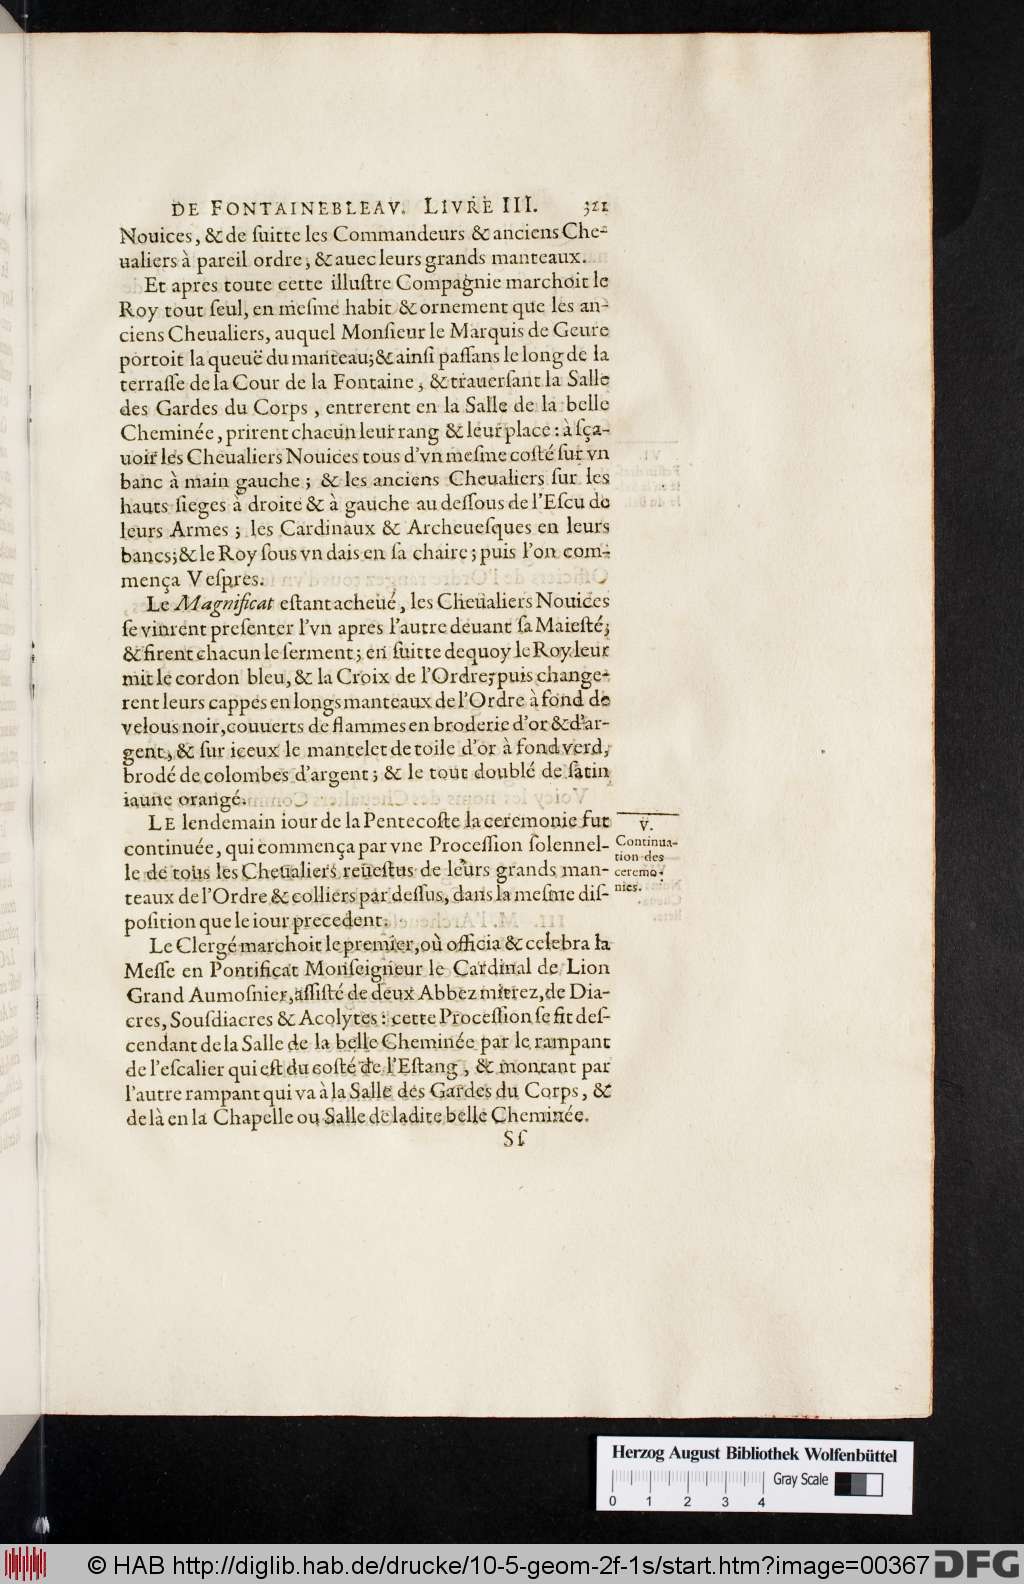 DE FONTAINEBLEAV. LIVRE III. 321
Nouices, & de ſuitte les Commandeurs & anciens Che-
ualiers à pareil ordre, & auec leurs grands manteaux.
Et apres toute cette illuſtre Compagnie marchoit le
Roy tout ſeul, en meſme habit & ornement que les an-
ciens Cheualiers, auquel Monſieur le Marquis de Geure
portoit la queuë du manteau; & ainſi paſſans le long de la
terraſſe de la Cour de la Fontaine, & trauerſant la Salle
des Gardes du Corps, entrerent en la Salle de la belle
Cheminée, prirent chacun leur rang & leur place: à ſça-
uoir les Cheualiers Nouices tous d'vn meſme coſté ſur vn
banc à main gauche; & les anciens Cheualiers ſur les
hauts ſieges à droite & à gauche au deſſous de l'Eſcu de
leurs Armes; les Cardinaux & Archeueſques en leurs
bancs; & le Roy ſous vn dais en ſa chaire; puis l'on com-
mença Veſpres.
Le Magnificat eſtant acheué, les Cheualiers Nouices
ſe vinrent preſenter l'vn apres l'autre deuant ſa Maieſté;
& firent chacun le ſerment; en ſuitte dequoy le Roy leur
mit le cordon bleu, & la Croix de l'Ordre; puis change-
rent leurs cappes en longs manteaux de l'Ordre à fond de
velous noir, couuerts de flammes en broderie d'or & d'ar-
gent, & ſur iceux le mantelet de toile d'or à fond verd,
brodé de colombes d'argent; & le tout doublé de ſatin
iaune orangé.
LE lendemain iour de la Pentecoſte la ceremonie fut
continuée, qui commença par vne Proceſſion ſolennel-
le de tous les Cheualiers reueſtus de leurs grands man-
teaux de l'Ordre & colliers par deſſus, dans la meſme diſ-
poſition que le iour precedent.
V.
Continua-
tion des
ceremo-
nies.
Le Clergé marchoit le premier, où officia & celebra la
Meſſe en Pontificat Monſeigneur le Cardinal de Lion
Grand Aumoſnier, aſſiſté de deux Abbez mitrez, de Dia-
cres, Souſdiacres & Acolytes: cette Proceſſion ſe fit deſ-
cendant de la Salle de la belle Cheminée par le rampant
de l'eſcalier qui eſt du coſté de l'Eſtang, & montant par
l'autre rampant qui va à la Salle des Gardes du Corps, &
de là en la Chapelle ou Salle de ladite belle Cheminée.
Sſ
Herzog August Bibliothek Wolfenbüttel
Gray Scale
0 1 2 3 4
© HAB http://diglib.hab.de/drucke/10-5-geom-2f-1s/start.htm?image=00367 DFG